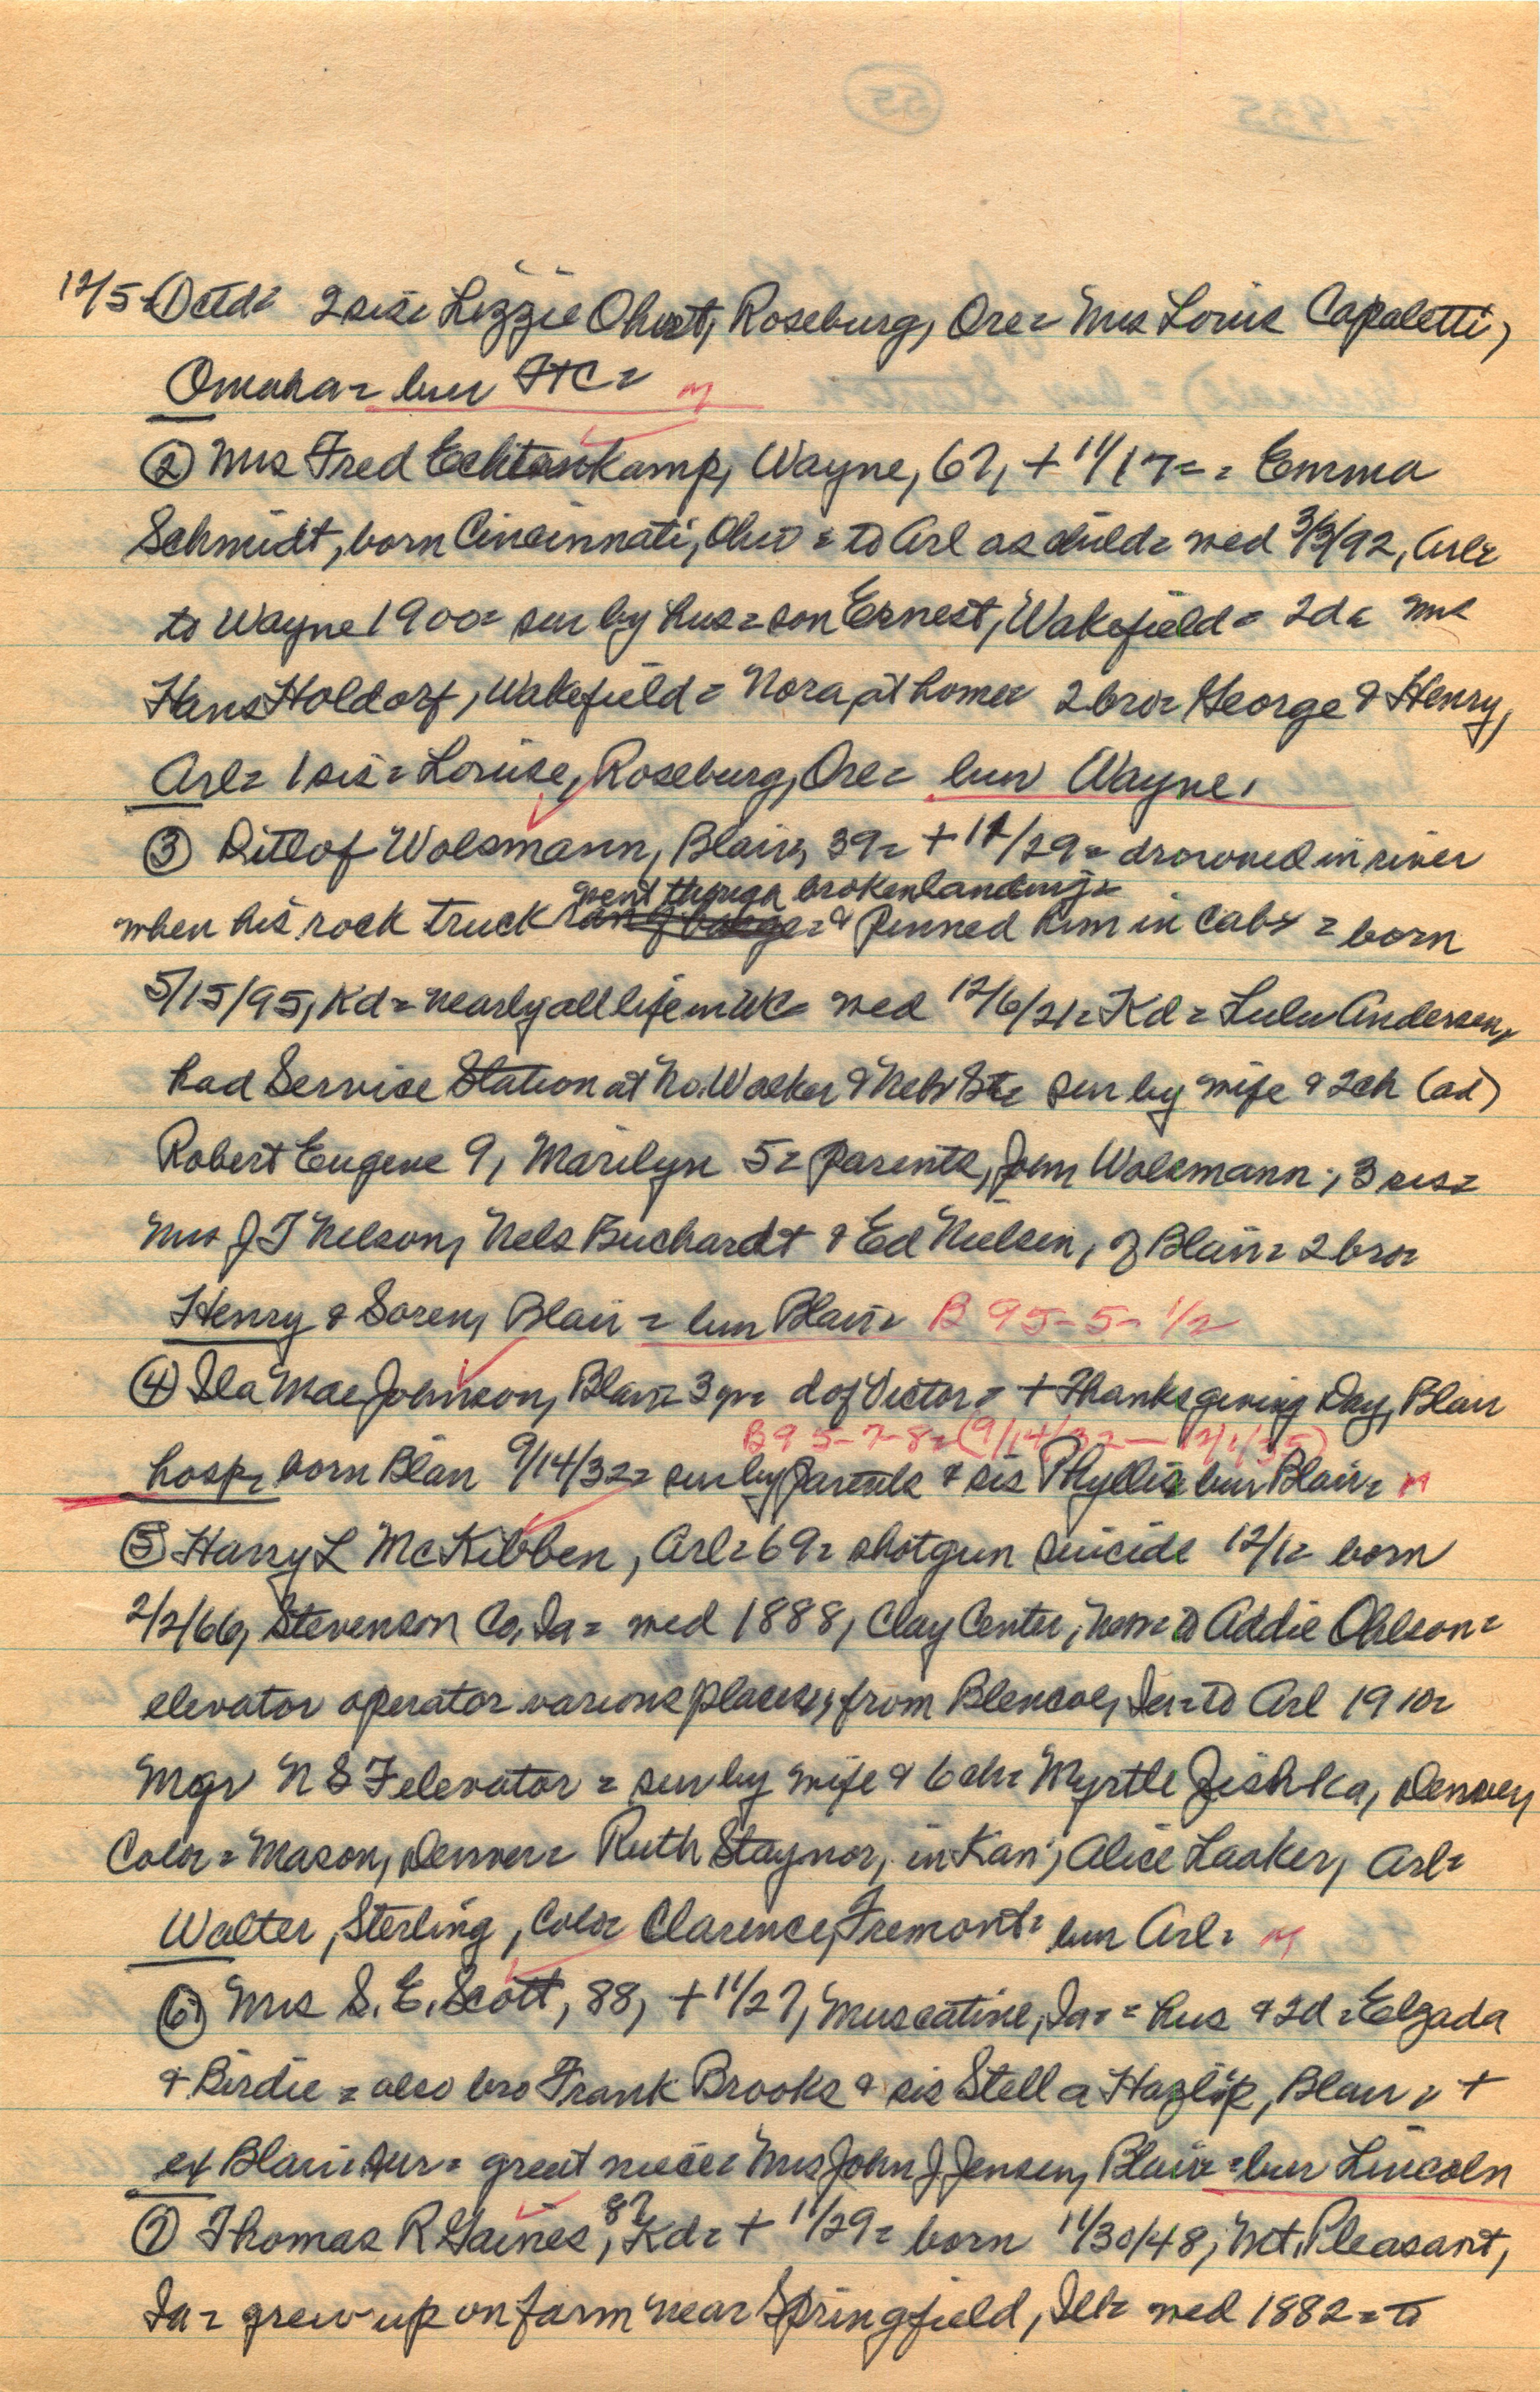 12/5 = ① ctd = 2 sis = Lizzie Ohrt, Roseburg, Ore = Mrs Louis Capaletti,
Omaha = bur FtC = M
② Mrs Fred Echtenkamp, Wayne, 67, + 11/17 = = Emma
Schmidt, born Cincinnati, Ohio = to Arl as child = wed 3/3/92, Arl =
to Wayne 1900 = sur by hus = son Ernest, Wakefield = 2d = Mrs
Hans Holdorf, Wakefield = Nora, at home = 2 bro = George & Henry,
Arl = 1 sis = Louise, Roseburg, Ore = bur Wayne.
③ Ditlof Wolsmann, Blair, 39 = + 11/29 = drowned in river
went through broken landing =
when his rock truck & pinned him in cab = born
5/15/95, Kd = nearly all life in WC = wed 12/6/21 = Kd = Lulu Andersen,
had Service Station at No. Walker & Neb St = sur by wife & 2ch (ad)
Robert Eugene 9, Marilyn 5 = parents, John Wolsmann; 3 sis =
Mrs J T Nelson, Nels Buchardt & Ed Nielsen, of Blair = 2 bro =
Henry & Soren, Blair = bur Blair = B 95-5-1/2
④ Ila Mae Johnson, Blair = 3 yr = d of Victor = + Thanksgiving Day, Blair
B95-7-8 = (9/14/32 — 12/1/35)
hosp = born Blair 9/14/32 = sur by parents & sis Phyllis bur Blair = M
⑤ Harry L McKibben, Arl = 69 = shotgun suicide 12/1 = born
2/2/66, Stevenson Co, Ia = wed 1888, Clay Center, Neb = to Addie Ohlson =
elevator operator various places, from Blencoe, Ia = to Arl 1910 =
Mgr N S F elevator = sur by wife & 6 ch = Myrtle Jishka, Denver,
Colo = Mason, Denver = Ruth Staynor, in Kan; Alice Laaker, Arl =
Walter, Sterling, Colo = Clarence, Fremont = bur Arl = M
⑥ Mrs S. E. Scott, 88, + 11/27, Muscatine, Ia = = hus & 2d = Elgada
& Birdie = also bro Frank Brooks & sis Stella Hazlip, Blair = +
ex Blair = sur = great niece = Mrs John J Jensen, Blair = bur Lincoln
⑦ Thomas R Gaines, 87 Kd = + 11/29 = born 11/30/48, Mt. Pleasant,
Ia = grew up on farm near Springfield, Ill = wed 1882 = to